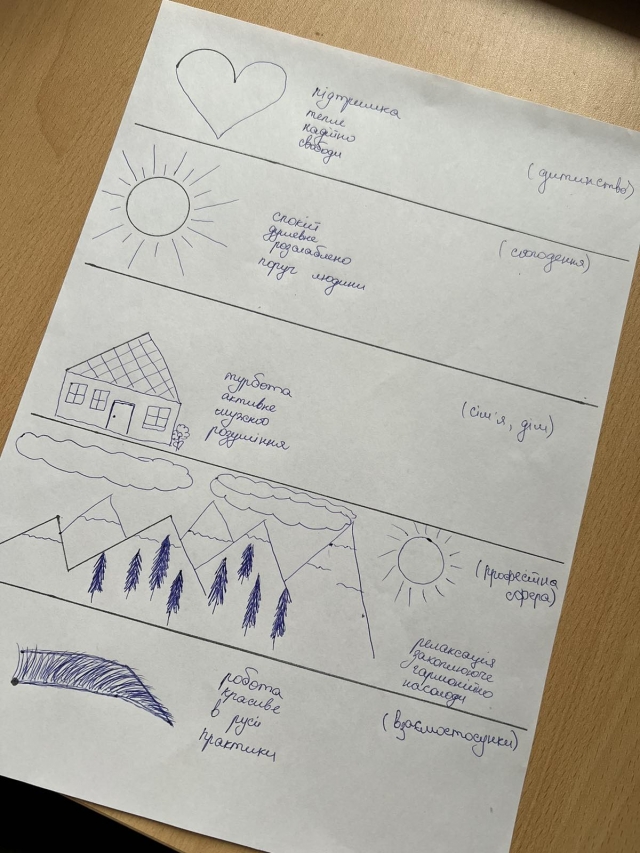 підтримка
тепле
надійно
свободи
(дитинство)
спокій
душевне
розслаблено
поруч людини
(сьогодення)
турбота
активне
розуміння
(сім'я, дім)
(професійна
сфера)
релаксація
захоплююче
гармонійно
насолоди
робота
красиве
в русі
практики
(взаємостосунки)